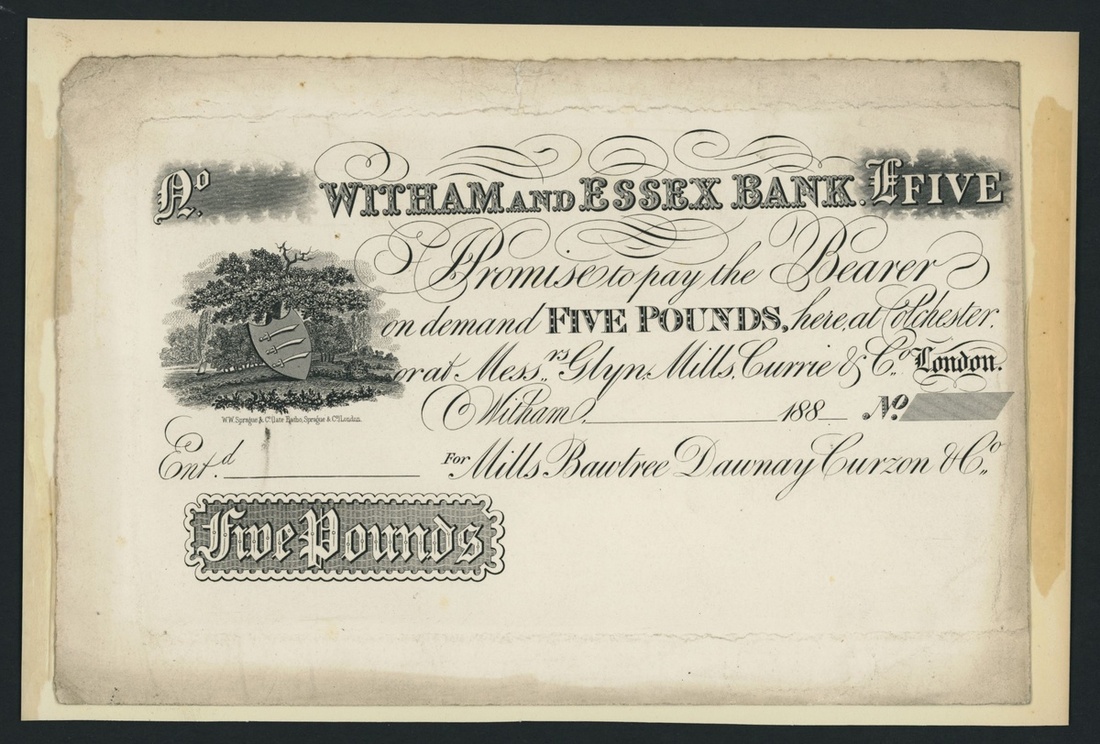 No. WITHAM AND ESSEX BANK. £FIVE
I Promise to pay the Bearer
on demand FIVE POUNDS, here, at Colchester.
or at Mess.rs Glyn, Mills, Currie & Co. London.
Witham, 188 No.
W.W. Sprague & Co. (late Eadie, Sprague & Co.) London.
Ent.d For Mills Bawtree Dawnay Curzon & Co.
Five Pounds